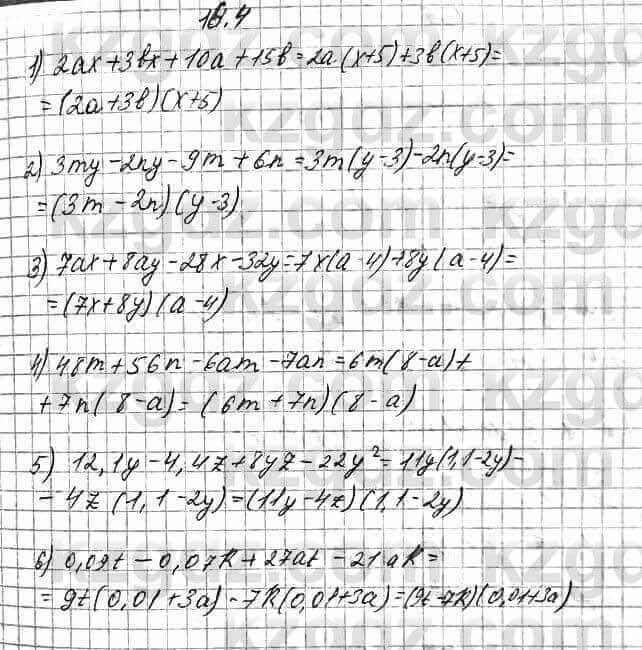 18.4
1) 2ax+3bx+10a+15b=2a(x+5)+3b(x+5)=
=(2a+3b)(x+5)
2) 3my-2ny-9m+6n=3m(y-3)-2n(y-3)=
=(3m-2n)(y-3)
3) 7ax+8ay-28x-32y=7x(a-4)+8y(a-4)=
=(7x+8y)(a-4)
4) 48m+56n-6am-7an=6m(8-a)+
+7n(8-a)=(6m+7n)(8-a)
5) 12,1y-4,4z+8yz-22y²=11y(1,1-2y)-
-4z(1,1-2y)=(11y-4z)(1,1-2y)
6) 0,09t-0,07k+27at-21ak=
=9t(0,01+3a)-7k(0,01+3a)=(9t-7k)(0,01+3a)